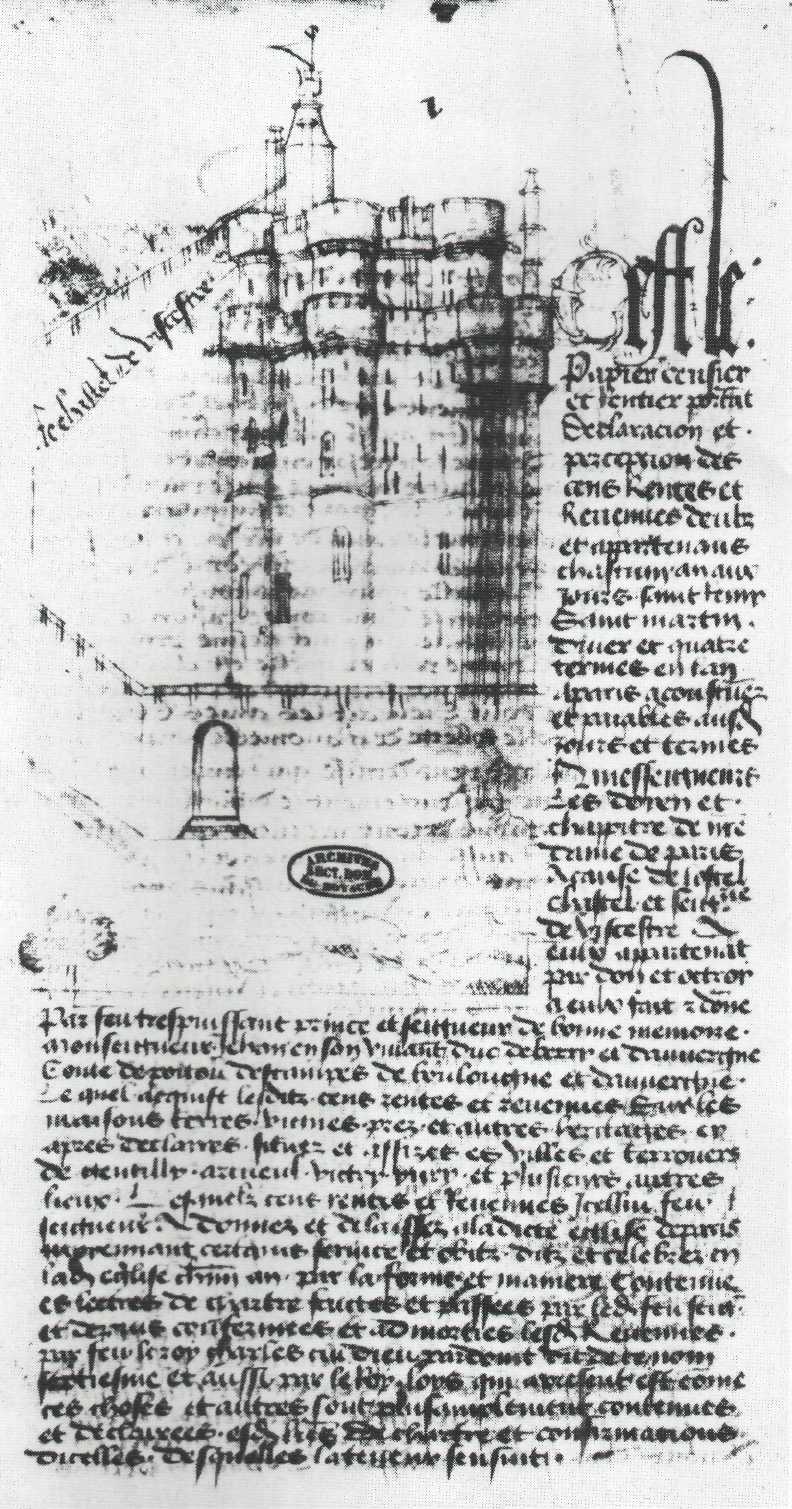 le chastel de Vicestre
Cest le
Papier censier
et Rentier portat
declaracion et
percepcion des
cens Rentes et
Revenues deubz
et appartenans
chascun an aux
Jours saint Remy
Saint martin
diver et quatre
termes en lan
aparis acoustumez
et paiables ausd
jours et termes
A messeigneurs
Les doyen et
chappitre de nre
dame de paris
A cause de lostel
chastel et seigrie
de Vicestre A
eulx appartenat
par don et octroy
a eulx fait
Par feu trespuissant prince et seigneur de bonne memoire
monseigneur Jehan en son vivant duc de berry et dauvergne
Conte de poitou destampes de boulougne et dauvergne
Le quel acquist lesditz cens rentes et revenues Sur les
maisons terres vignes prez et autres heritaiges cy
apres declarees situez et assizes es villes et terrouers
de gentilly arcueil victry yvry et plusieurs autres
lieux Lesquelz cens rentes et Revenues Icellui feu
seigneur A donnez et delaissez aladicte eglise deparis
moyennant certains service et obitz ditz et celebrez en
lad eglise chun an par la forme et maniere Contenue
es lectres de chartre faictes et passees par led feu seigr
et depuis confermees et admorties lesd Revenues
par feu le roy charles cui dieu pardoint dit de ce nom
septiesme et aussi par le Roy loys qui apresent est come
ces choses et autres sont plusamplement contenues
et declairees esd lres de chartre et confirmacions
dicelles desquelles la teneur sensuit
ARCHIVES